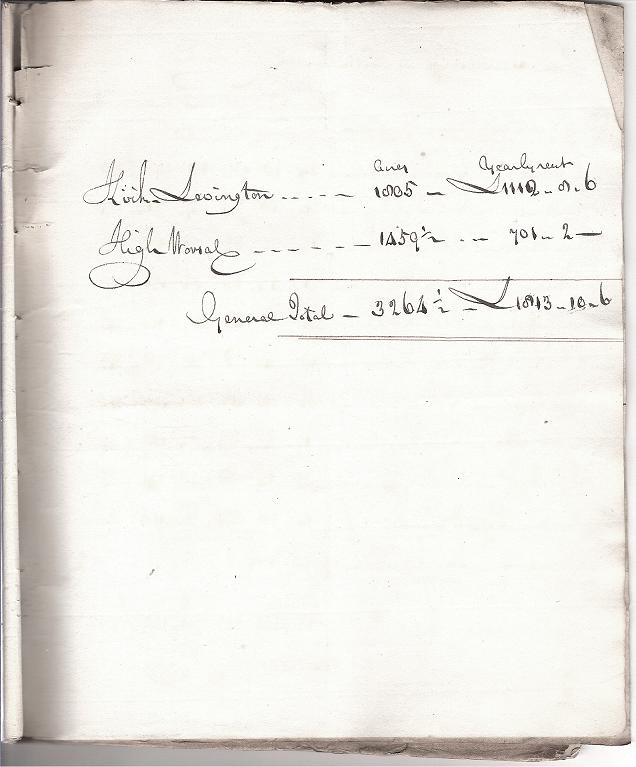 Acres Yearly rent
Kirk-Levington ..... 1805 - £1112-8-6
High Worsal ------- 1459½ --- 701-2-
General Total - 3264½ - £1813-10-6